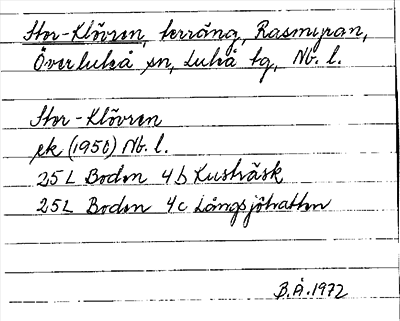 Stor-Klövren, terräng, Rasmyran,
Överluleå sn, Luleå tg, Nb. l.
Stor-Klövren
ek (1950) Nb. l.
25L Boden 4b Kusträsk
25L Boden 4c Långsjöhatten
B.Å. 1972